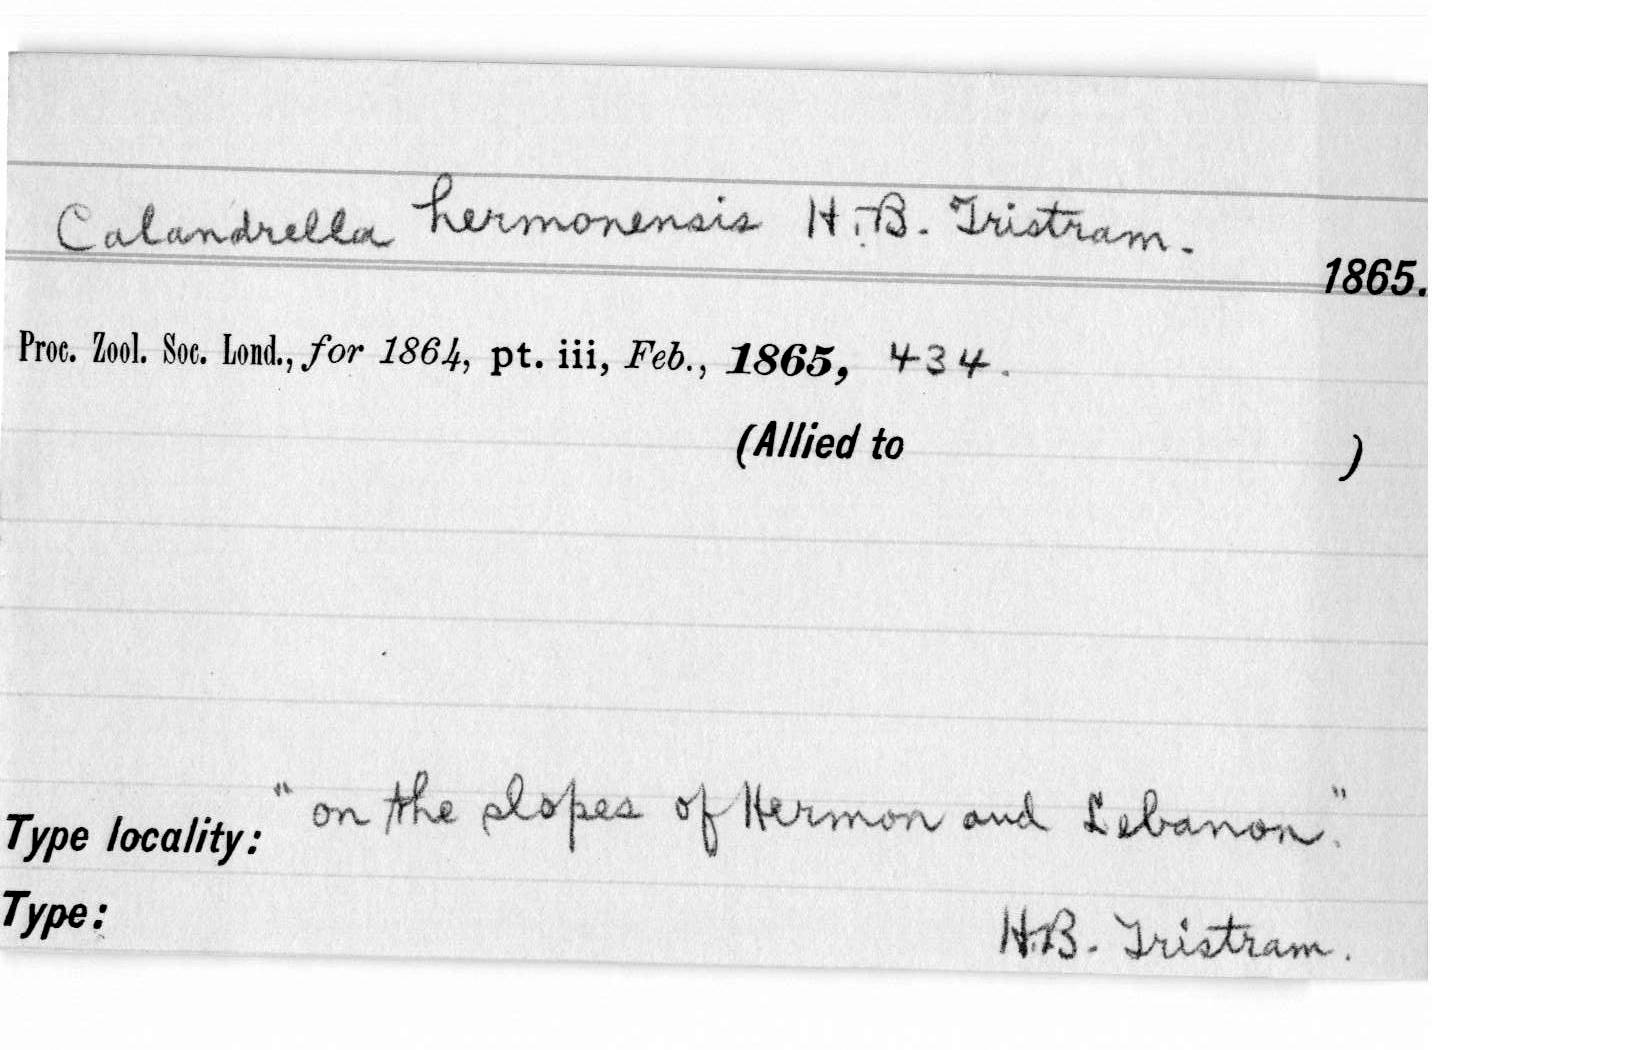 Calandrella hermonensis H.B. Tristram.
1865.
Proc. Zool. Soc. Lond., for 1864, pt. iii, Feb., 1865, 434.
(Allied to )
Type locality: "on the slopes of Hermon and Lebanon."
Type: H.B. Tristram.